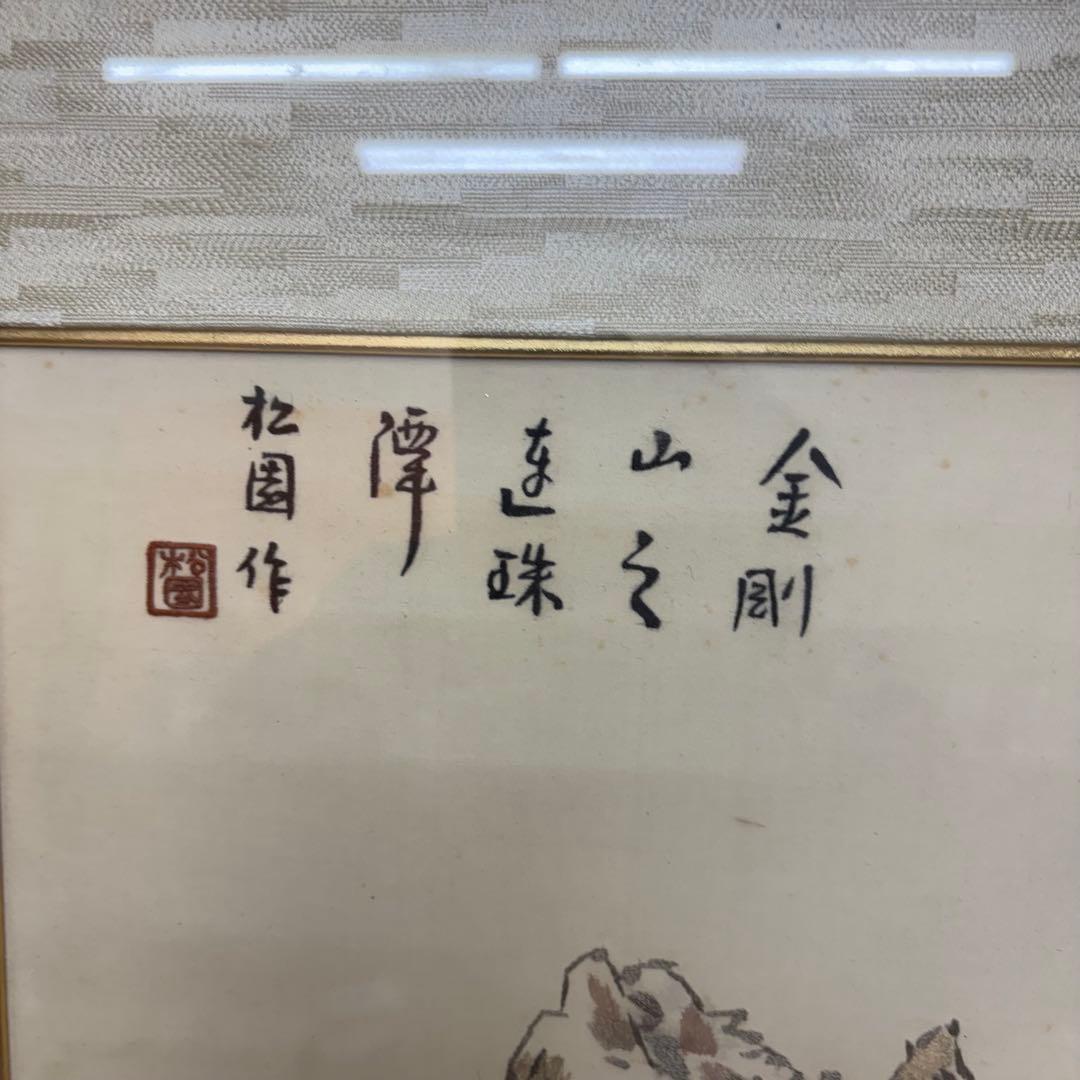 金剛
山之
連珠
潭
松園作
松園